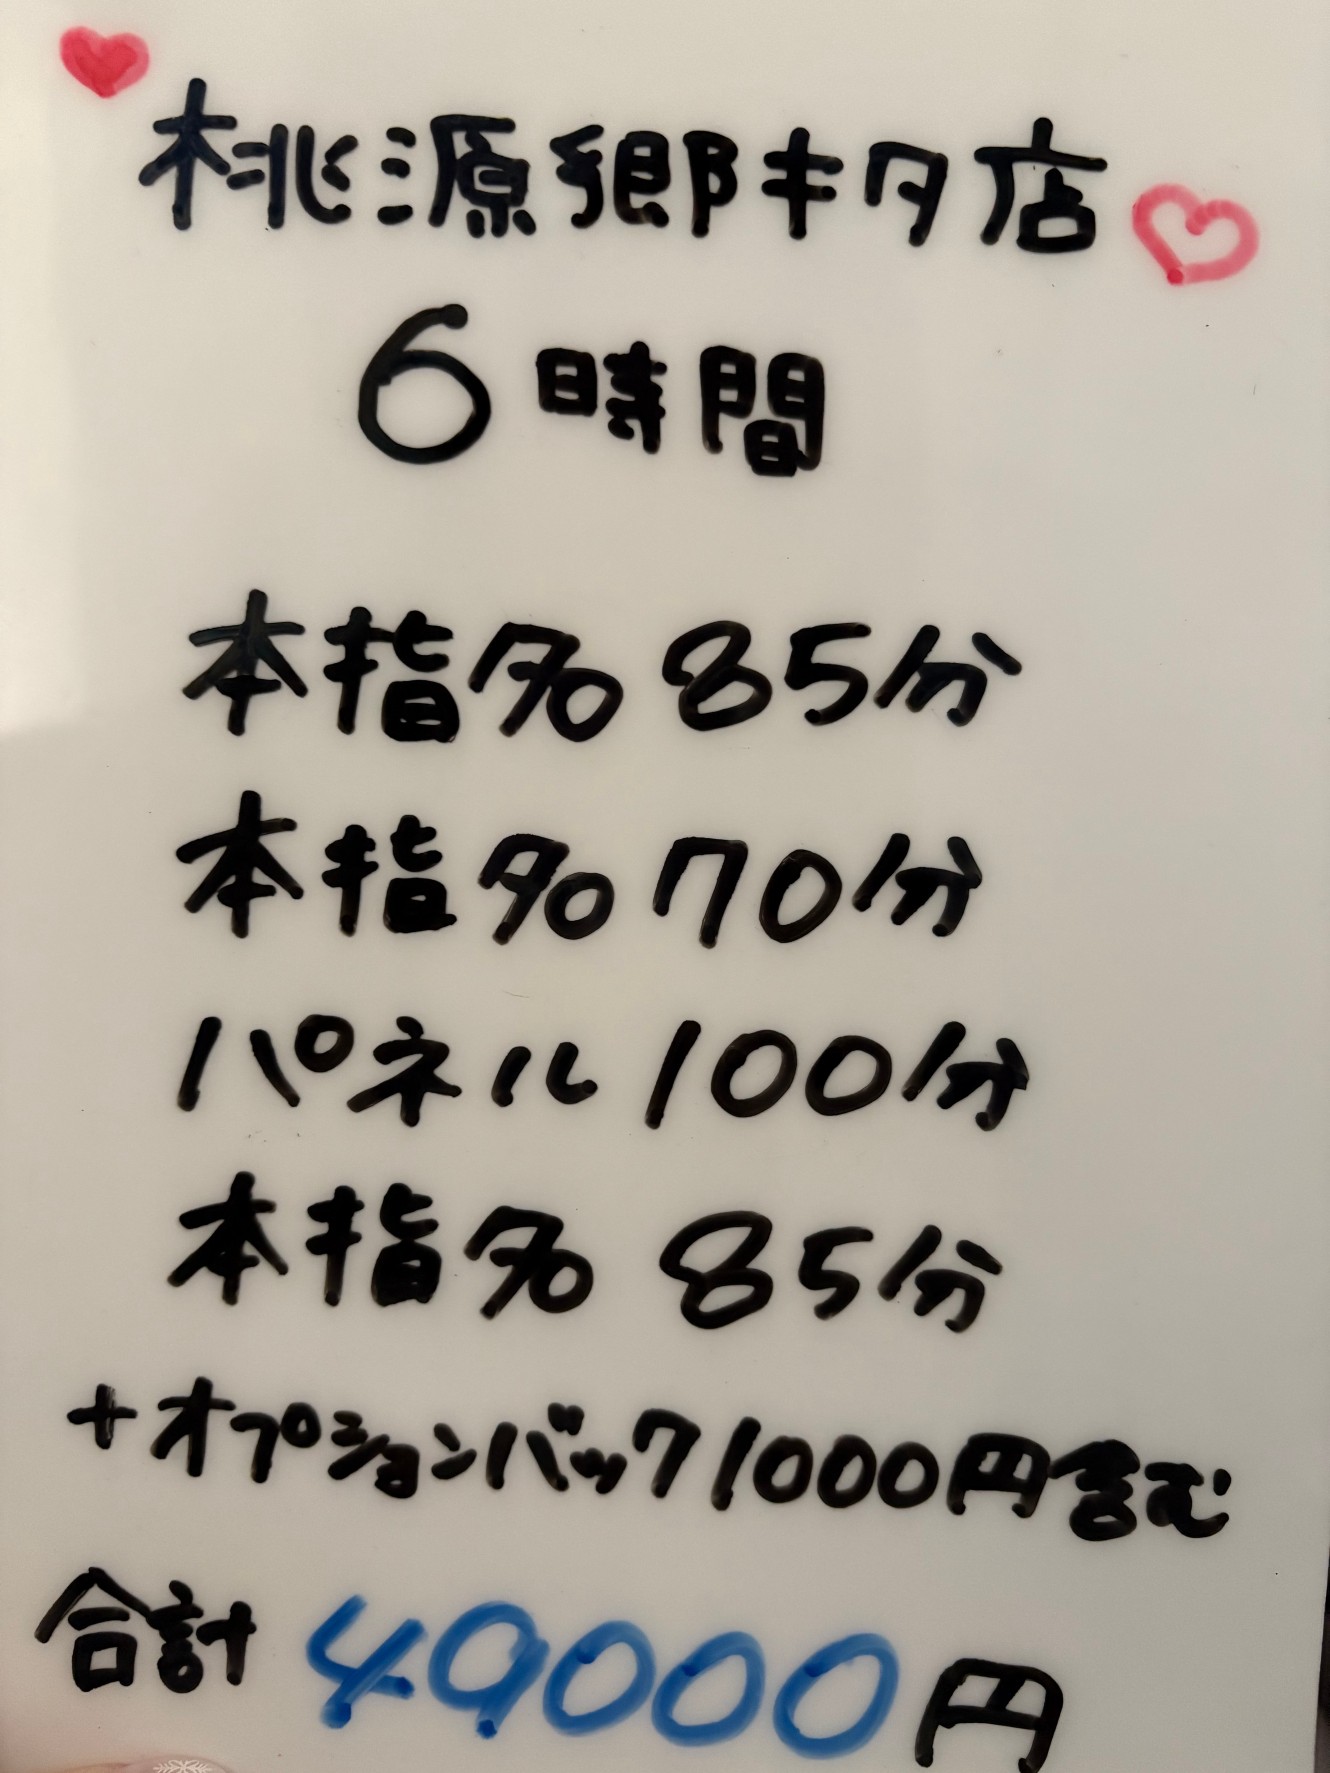 桃源郷キタ店
6時間
本指名 85分
本指名 70分
パネル 100分
本指名 85分
+オプションバック1000円含む
合計 49000円